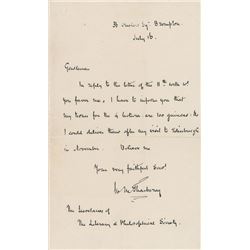 36 Onslow Sqr Brompton
July 16.
Gentlemen
In reply to the letter of the 11th with wh
you favor me, I have to inform you that
my terms for the 4 lectures are 100 guineas. &
I could deliver them after my visit to Edinburgh
in November. Believe me
Your very faithful Servt
W M Thackeray
The Secretaries of
The Literary & Philosophical Society.